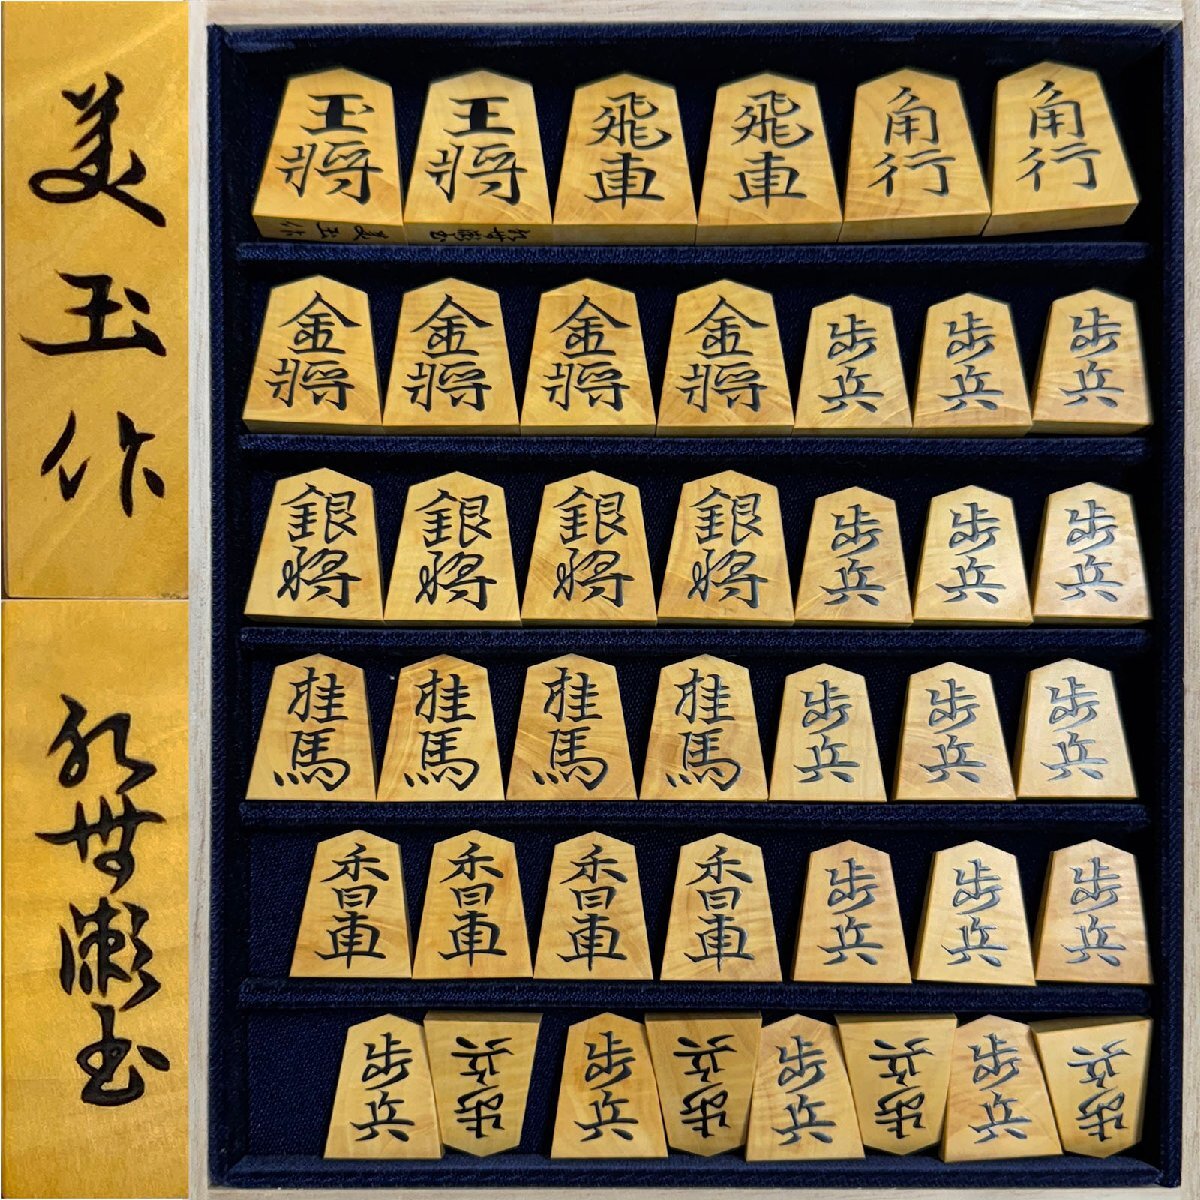 美玉作
水無瀬書
玉将 王将 飛車 飛車 角行 角行
金将 金将 金将 金将 歩兵 歩兵 歩兵
銀将 銀将 銀将 銀将 歩兵 歩兵 歩兵
桂馬 桂馬 桂馬 桂馬 歩兵 歩兵 歩兵
香車 香車 香車 香車 歩兵 歩兵 歩兵
歩兵 歩兵 歩兵 歩兵 歩兵 歩兵 歩兵 歩兵